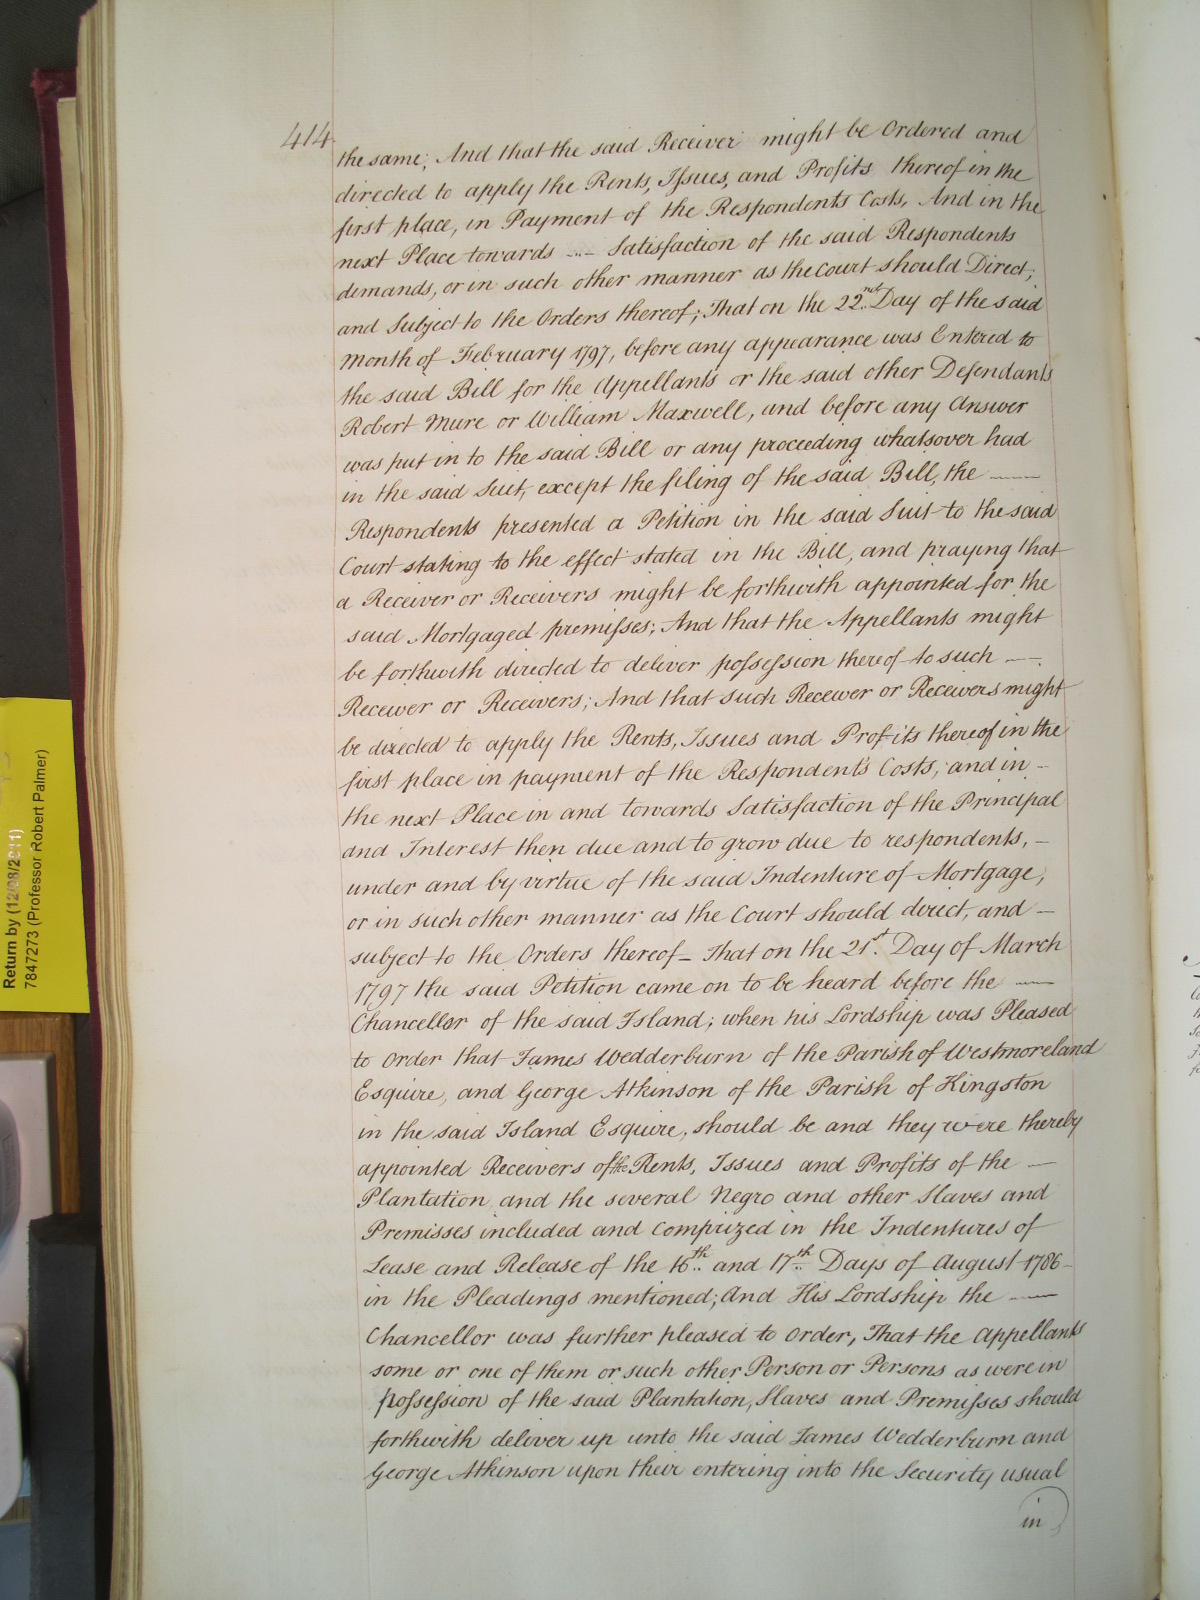 414
the same; And that the said Receiver might be Ordered and
directed to apply the Rents, Issues, and Profits thereof in the
first place, in Payment of the Respondents Costs, And in the
next Place towards ---- Satisfaction of the said Respondents
demands, or in such other manner as the Court should Direct;
and Subject to the Orders thereof; That on the 22nd Day of the said
Month of February 1797, before any appearance was Entered to
the said Bill for the Appellants or the said other Defendants
Robert Mure or William Maxwell, and before any Answer
was put in to the said Bill or any proceeding whatsover had
in the said Suit, except the filing of the said Bill, the ——
Respondents presented a Petition in the said Suit to the said
Court stating to the effect stated in the Bill, and praying that
a Receiver or Receivers might be forthwith appointed for the
said Mortgaged premisses; And that the Appellants might
be forthwith directed to deliver possession thereof to such ——
Receiver or Receivers; And that such Receiver or Receivers might
be directed to apply the Rents, Issues and Profits thereof in the
first place in payment of the Respondent's Costs; and in –
the next Place in and towards Satisfaction of the Principal
and Interest then due and to grow due to respondents, –
under and by virtue of the said Indenture of Mortgage,
or in such other manner as the Court should direct, and –
subject to the Orders thereof – That on the 21st Day of March
1797 the said Petition came on to be heard before the ——
Chancellor of the said Island; when his Lordship was Pleased
to Order that James Wedderburn of the Parish of Westmoreland
Esquire, and George Atkinson of the Parish of Kingston
in the said Island Esquire, should be and they were thereby
appointed Receivers of the Rents, Issues and Profits of the —
Plantation and the several Negro and other Slaves and
Premisses included and Comprized in the Indentures of
Lease and Release of the 16th and 17th Days of August 1786 –
in the Pleadings mentioned; And His Lordship the ——
Chancellor was further pleased to Order, That the Appellants
some or one of them or such other Person or Persons as were in
possession of the said Plantation, Slaves and Premisses should
forthwith deliver up unto the said James Wedderburn and
George Atkinson upon their entering into the Security usual
in
Return by (12/08/2011)
7847273 (Professor Robert Palmer)